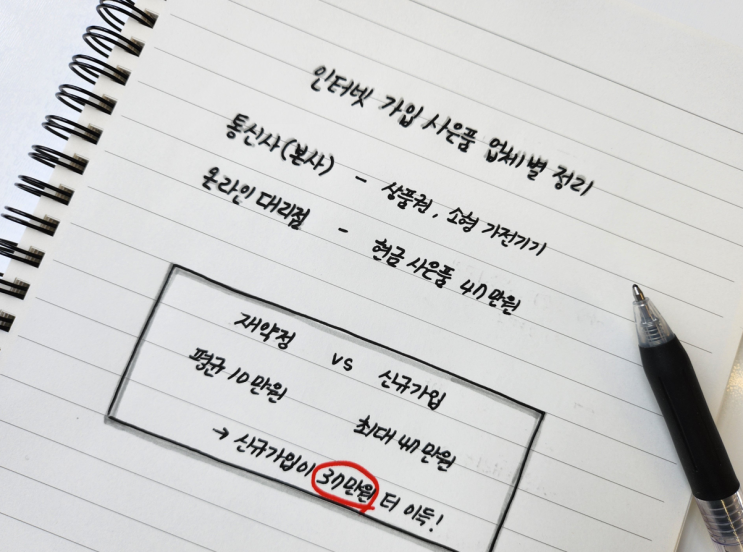 인터넷 가입 사은품 업체별 정리
통신사(본사) - 상품권, 소형 가전기기
온라인 대리점 - 현금 사은품 47만원
재약정 vs 신규가입
평균 10만원 최대 47만원
→ 신규가입이 37만원 더 이득!